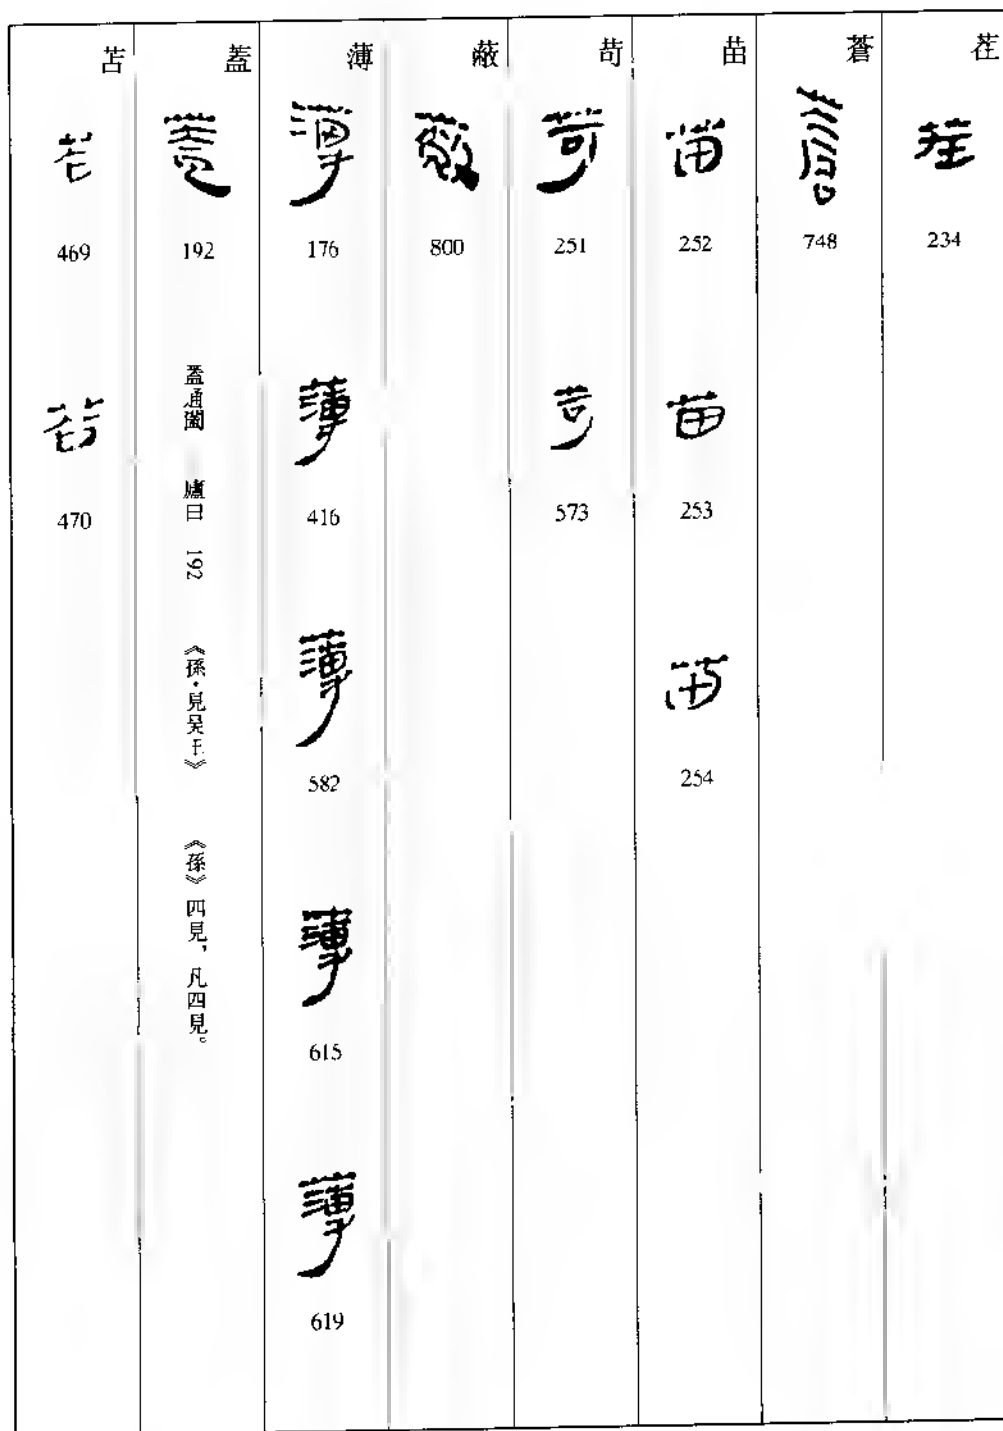 茬 茬 234
蒼 蒼 748
苗 苗 252 苗 253 苗 254
苛 苛 251 苛 573
蔽 蔽 800
薄 薄 176 薄 416 薄 582 薄 615 薄 619
蓋 蓋 192 蓋通闔 廬曰 192 《孫·見吳王》 《孫》四見，凡四見。
苫 苫 469 苫 470